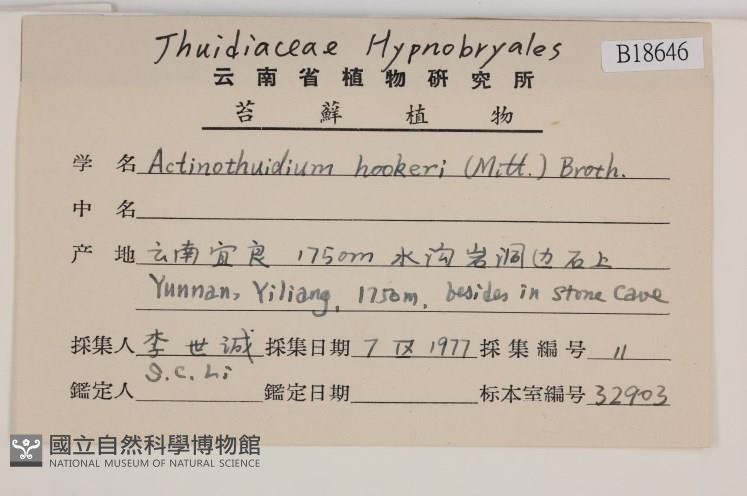 Thuidiaceae Hypnobryales
B18646
云南省植物研究所
苔蘚植物
学名 Actinothuidium hookeri (Mitt.) Broth.
中名
产地 云南宜良 1750m 水沟岩洞边石上
Yunnan, Yiliang, 1750m, besides in stone cave
採集人 李世诚 採集日期 7 IX 1977 採集編号 11
S.C. Li
鑑定人 鑑定日期 标本室編号 32903
國立自然科學博物館
NATIONAL MUSEUM OF NATURAL SCIENCE